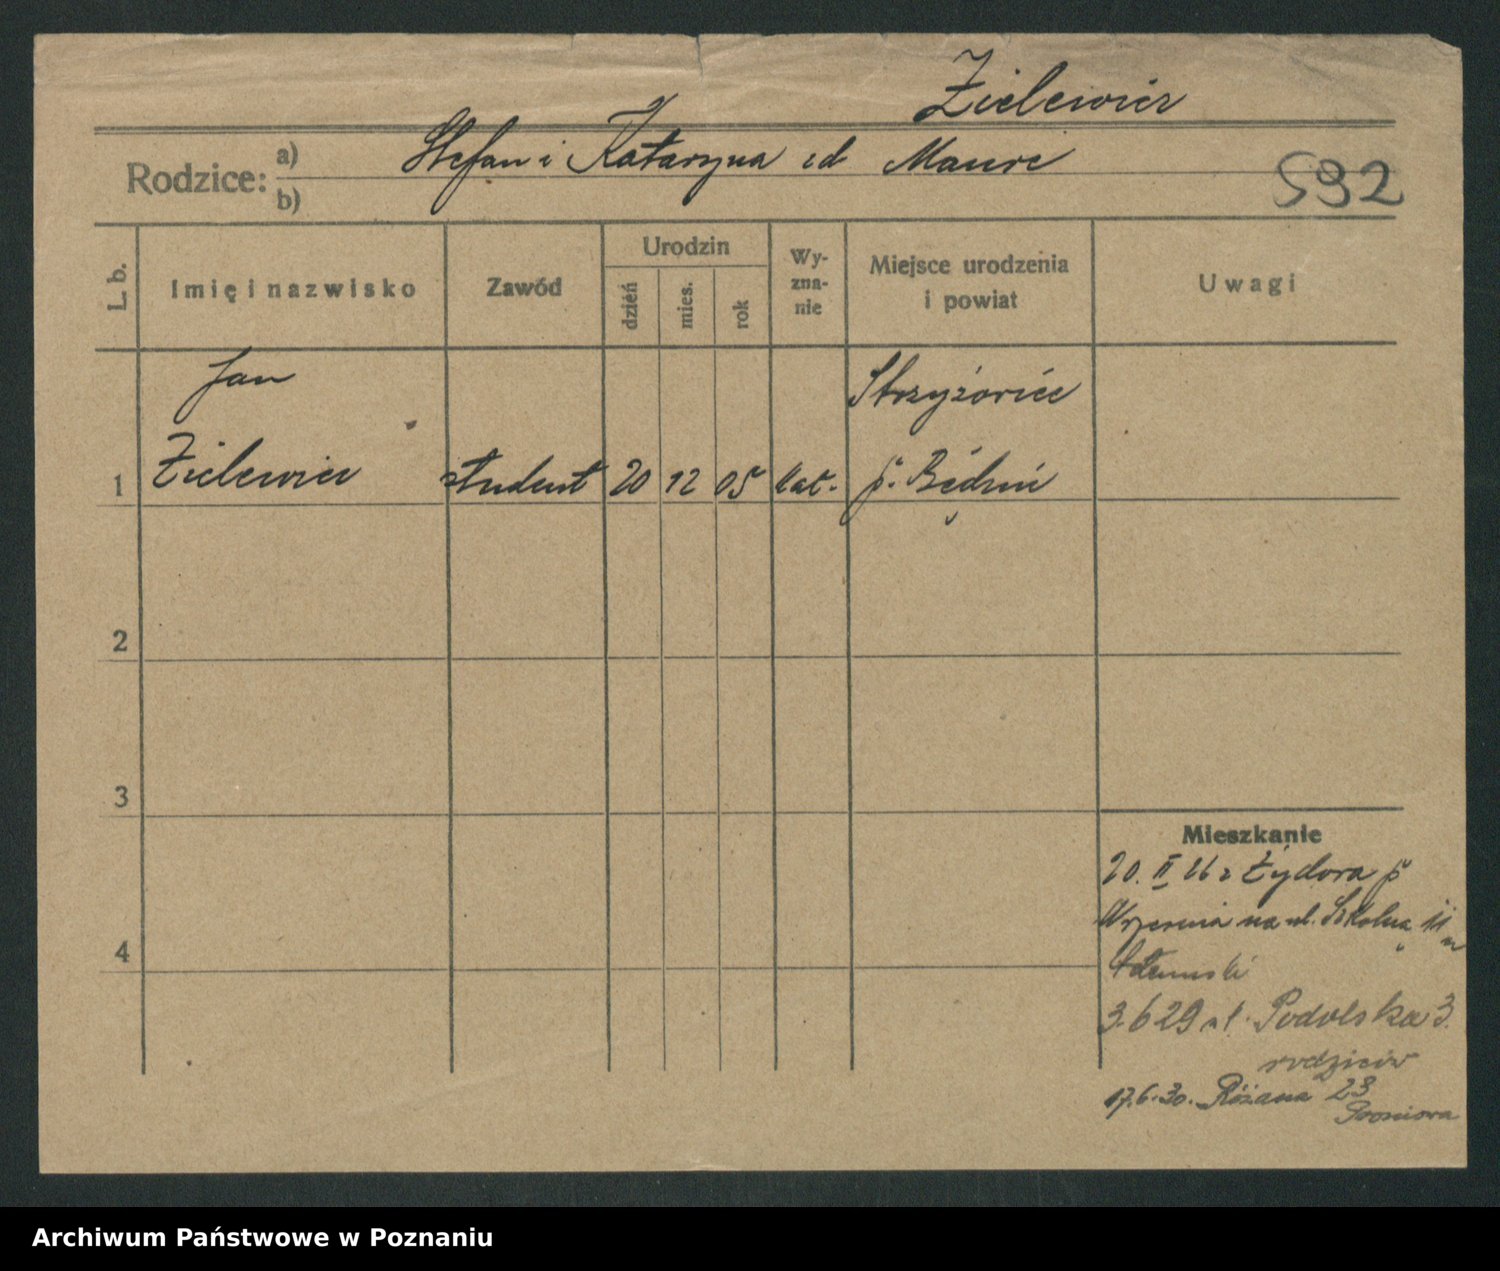 Zielewicz
Rodzice: a) b)
Stefan i Katarzyna
592
L. b.
Imię i nazwisko
Zawód
Urodzin
dzień
mies.
rok
Wy-
zna-
nie
Miejsce urodzenia
i powiat
Uwagi
Jan
Zielewicz
1
student
20
12
05
kat.
Strzyżowice
p. Będzin
2
3
4
Mieszkanie
20. II 26 z Żydowa p
Września na ul. Szkolną 11
3.6 29 ul. Podolska 3.
rodziców
17.6.30. Różana 23